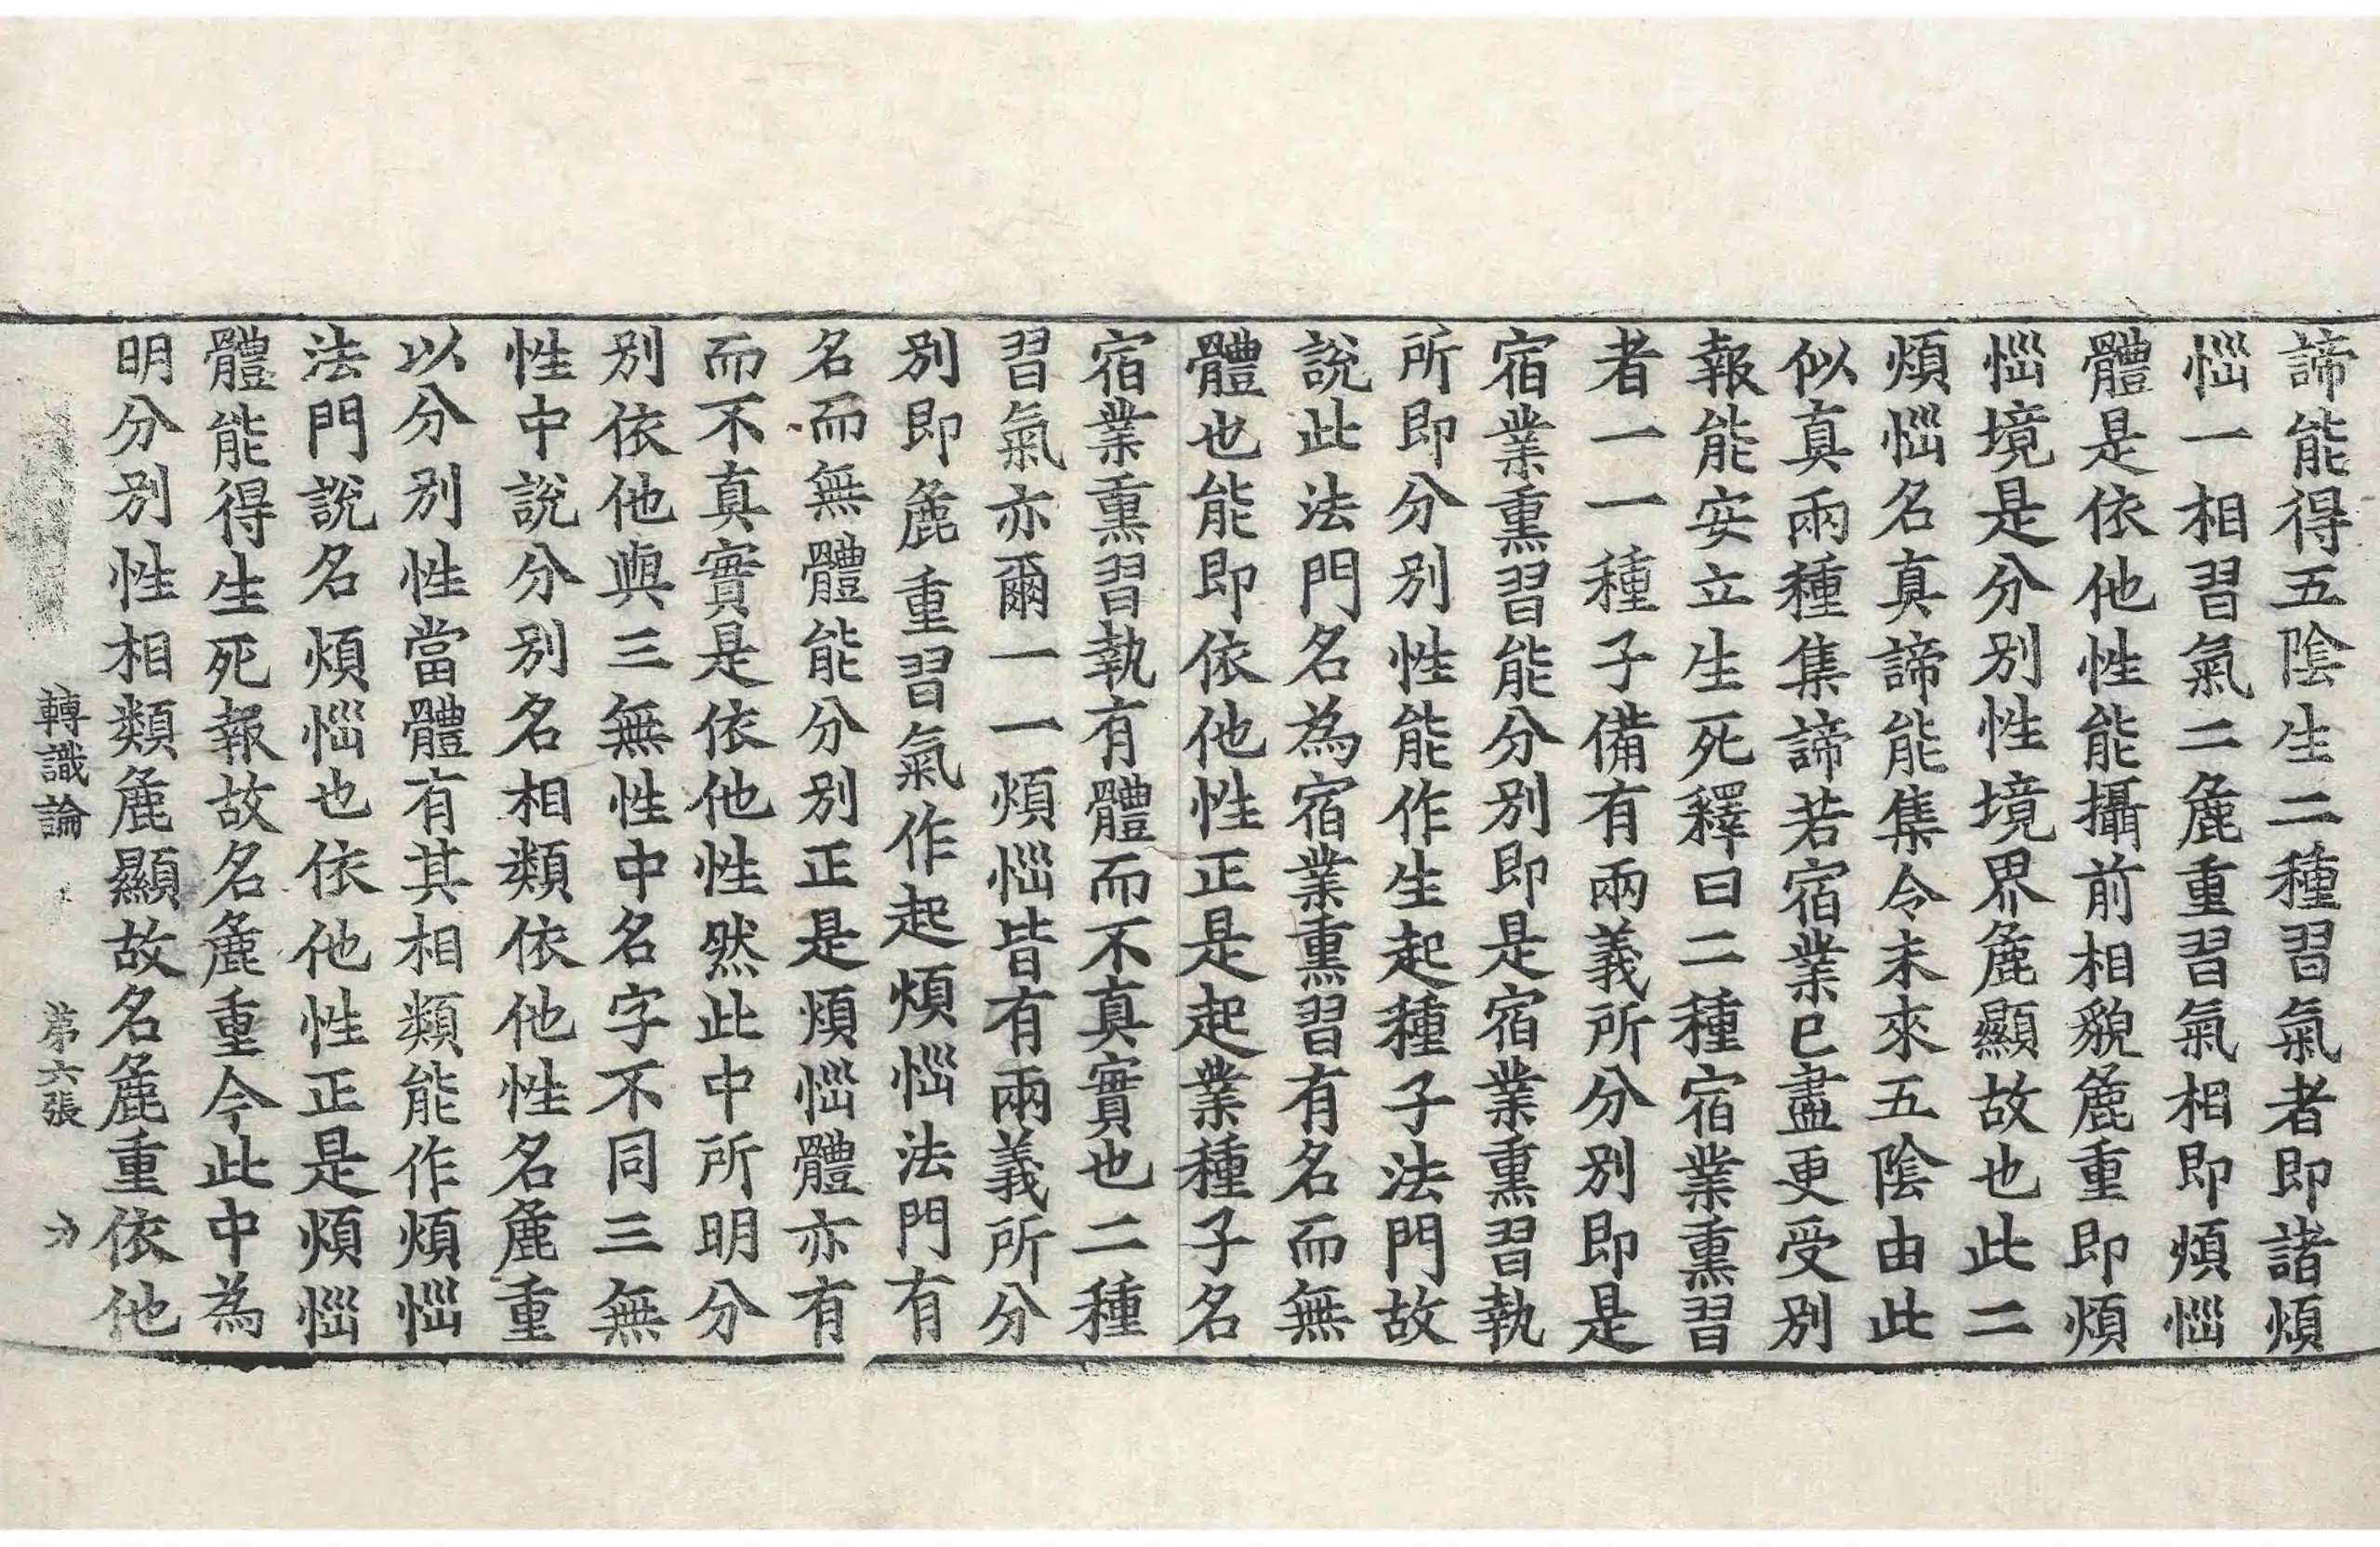 諦能得五陰生二種習氣者即諸煩
惱一相習氣二麁重習氣相即煩惱
體是依他性能攝前相貌麁重即煩
惱境是分別性境界麁顯故也此二
煩惱名真諦能集令未來五陰由此
似真兩種集諦若宿業已盡更受別
報能安立生死釋曰二種宿業熏習
者一一種子備有兩義所分別即是
宿業熏習能分別即是宿業熏習執
所即分別性能作生起種子法門故
說此法門名為宿業熏習有名而無
體也能即依他性正是起業種子名
宿業熏習執有體而不真實也二種
習氣亦爾一一煩惱皆有兩義所分
別即麁重習氣作起煩惱法門有
名而無體能分別正是煩惱體亦有
而不真實是依他性然此中所明分
別依他與三無性中名字不同三無
性中說分別名相類依他性名麁重
以分別性當體有其相類能作煩惱
法門說名煩惱也依他性正是煩惱
體能得生死報故名麁重今此中為
明分別性相類麁顯故名麁重依他
轉識論　第六張　力